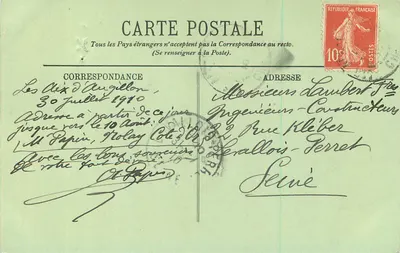 CARTE POSTALE
Tous les Pays étrangers n'acceptent pas la Correspondance au recto.
(Se renseigner à la Poste)
CORRESPONDANCE
Les Aix d'Angillon,
30 juillet 1910
Adresse à partir de ce jour
jusque vers le 10 Août:
M Papin, Nolay Côte d'Or
Avec les bons souvenirs
de votre tout dévoué
Papin
REPUBLIQUE FRANÇAISE
10
POSTES
ADRESSE
Messieurs Lambert Frères
Ingénieurs-Constructeurs
Rue Kléber
Levallois-Perret
Seine